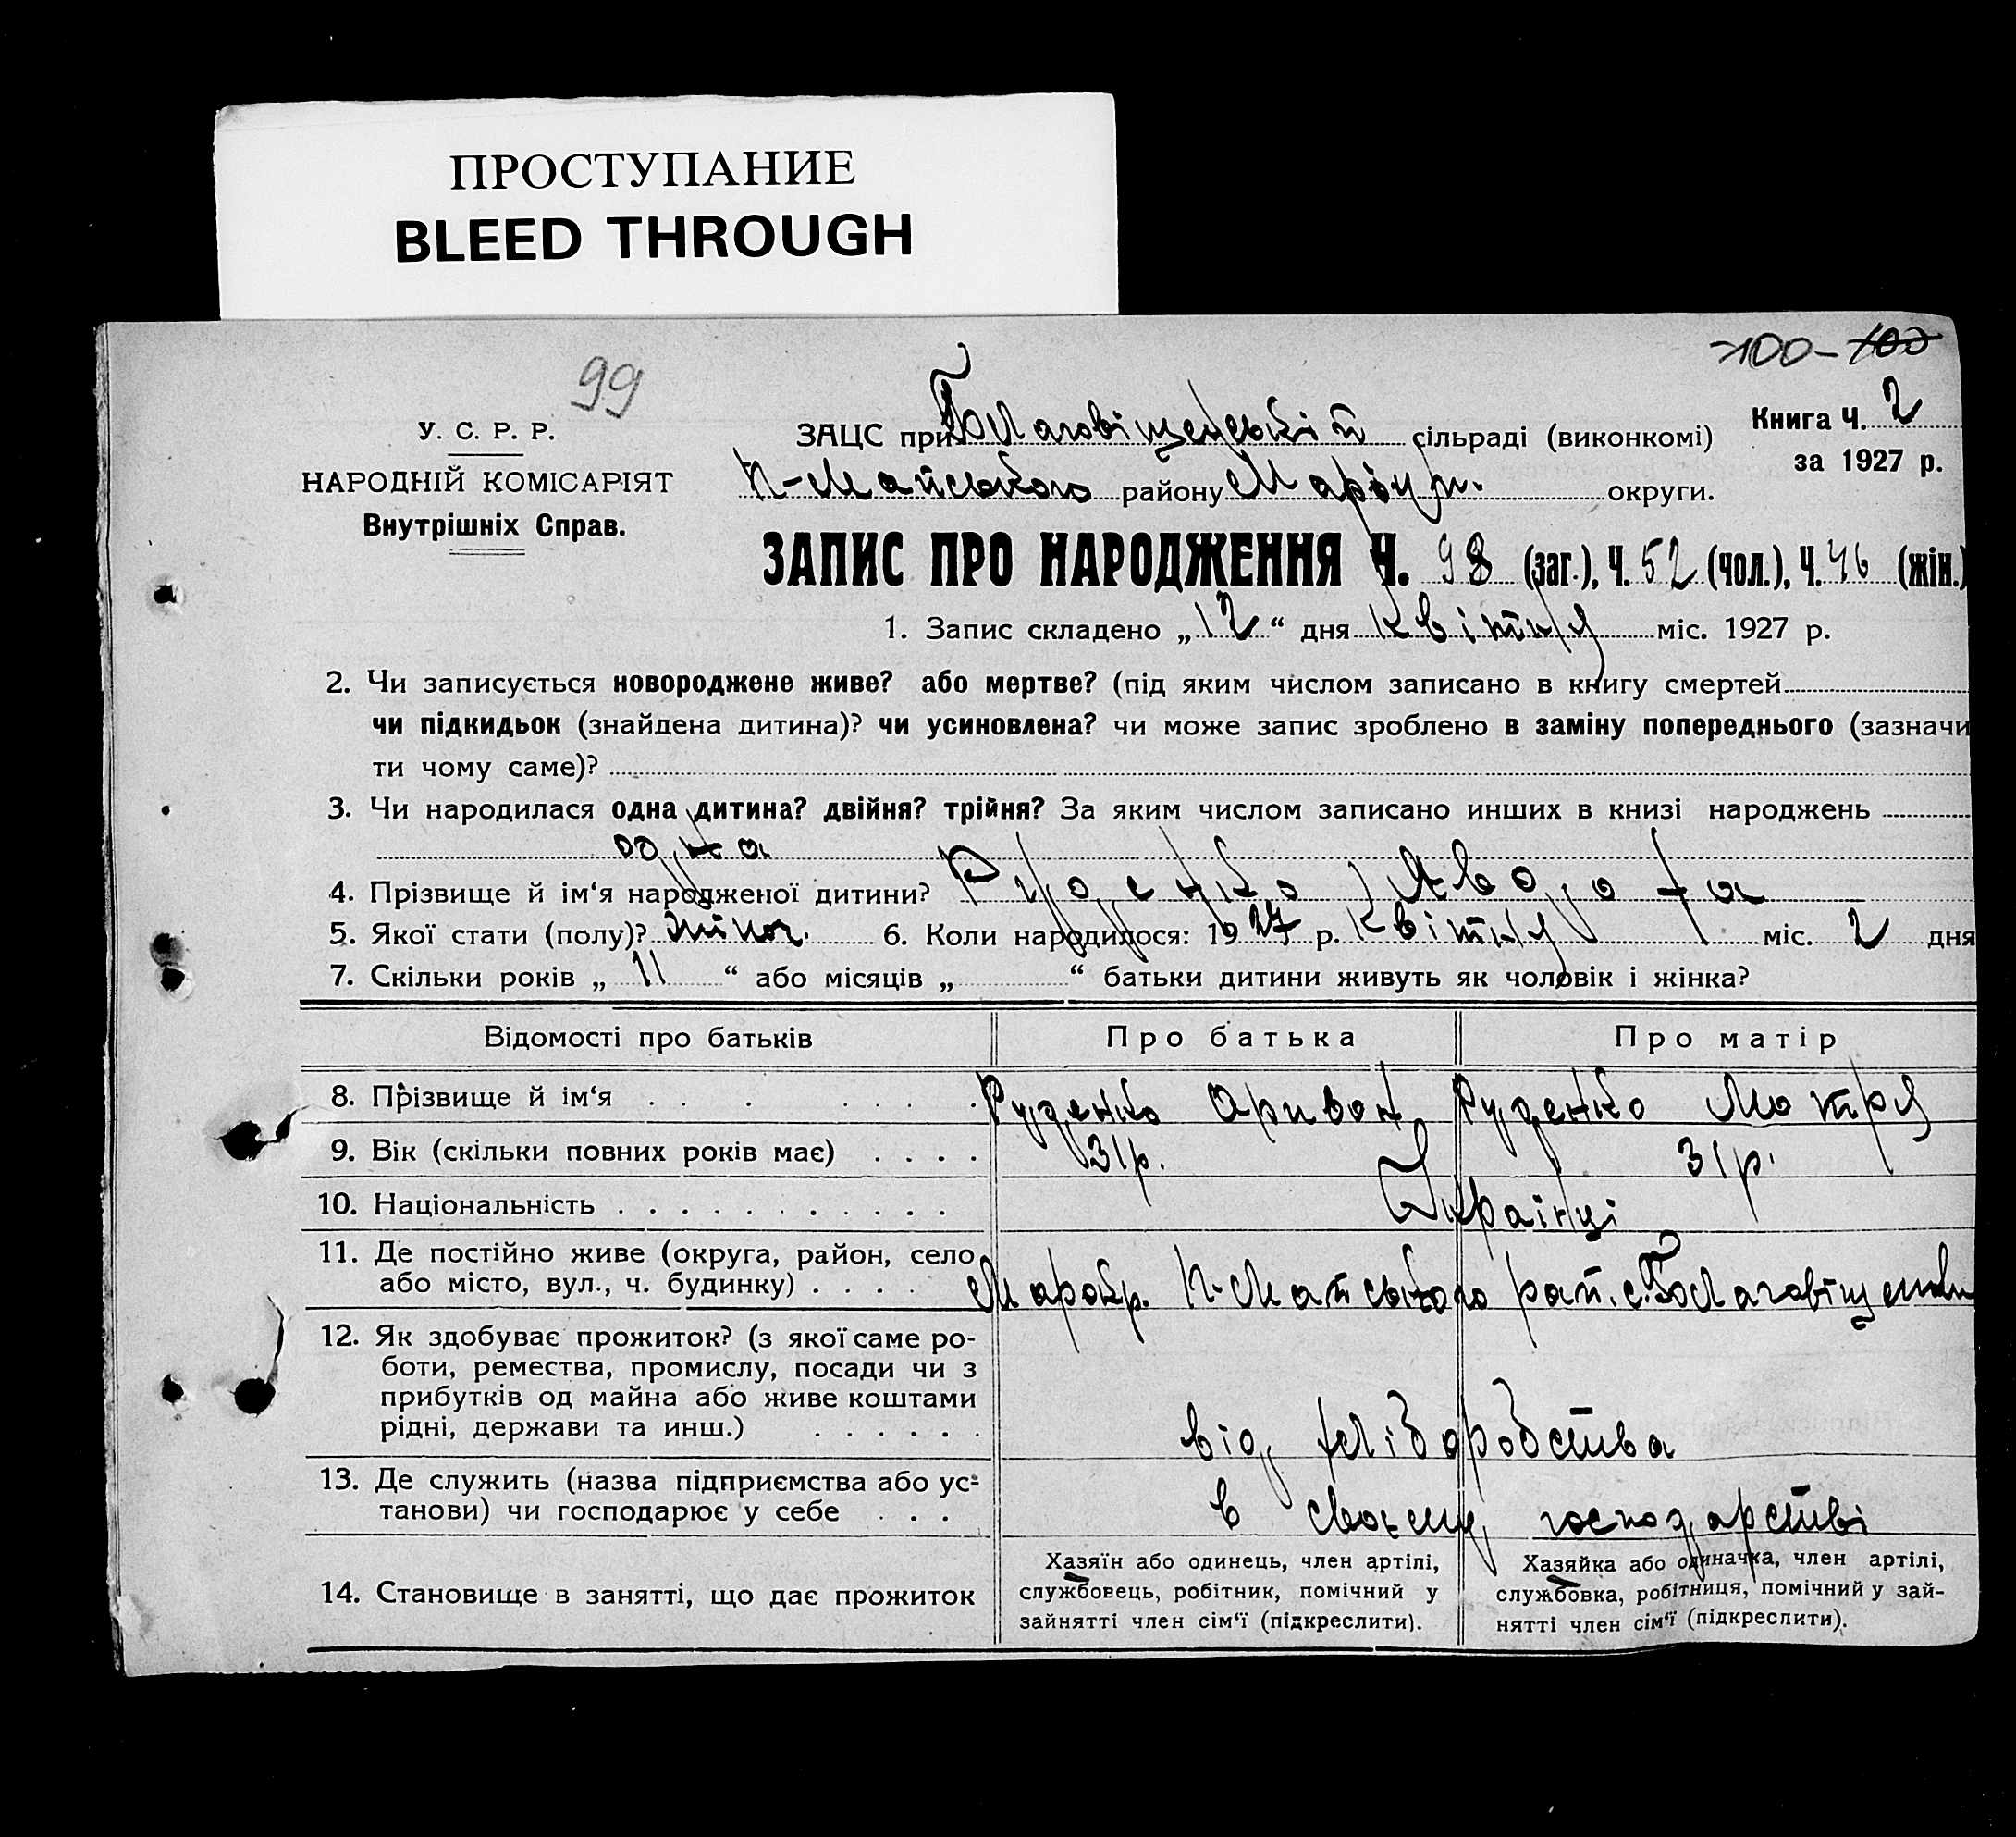 ПРОСТУПАНИЕ
BLEED THROUGH
100 - 100
99
Книга Ч. 2
за 1927 р.
У. С. Р. Р.
НАРОДНІЙ КОМІСАРІЯТ
Внутрішніх Справ.
ЗАЦС при Благовіщенській сільраді (виконкомі)
П-Майського району Маріуп. округи.
ЗАПИС ПРО НАРОДЖЕННЯ Ч. 98 (заг.), Ч. 52 (чол.), Ч. 46 (жін.)
1. Запис складено „12“ дня квітня міс. 1927 р.
2. Чи записується новороджене живе? або мертве? (під яким числом записано в книгу смертей
чи підкидьок (знайдена дитина)? чи усиновлена? чи може запис зроблено в заміну попереднього (зазначи
ти чому саме)?
3. Чи народилася одна дитина? двійня? трійня? За яким числом записано инших в книзі народжень
одна
4. Прізвище й ім‘я народженої дитини? Руденко Явдоха
5. Якої стати (полу)? жіноч. 6. Коли народилося: 1927 р. квітня міс. 2 дня
7. Скільки років „ 11 “ або місяців „ “ батьки дитини живуть як чоловік і жінка?
Відомості про батьків Про батька Про матір
8. Прізвище й ім‘я . . . . . . . Руденко Руденко Мотря
9. Вік (скільки повних років має) . . . . 31р. 31р.
10. Національність . . . . . . . . . . . Українці
11. Де постійно живе (округа, район, село
або місто, вул., ч. будинку) . . . . П-Майського рай. с. Благовіщенки
12. Як здобуває прожиток? (з якої саме ро-
боти, ремества, промислу, посади чи з
прибутків од майна або живе коштами
рідні, держави та инш.) . . . . . . від хліборобства
13. Де служить (назва підприємства або ус-
танови) чи господарює у себе . . . в своєму господарстві
14. Становище в занятті, що дає прожиток
Хазяїн або одинець, член артілі,
службовець, робітник, помічний у
зайнятті член сім‘ї (підкреслити).
Хазяйка або одиначка, член артілі,
службовка, робітниця, помічний у зай-
нятті член сім‘ї (підкреслити).